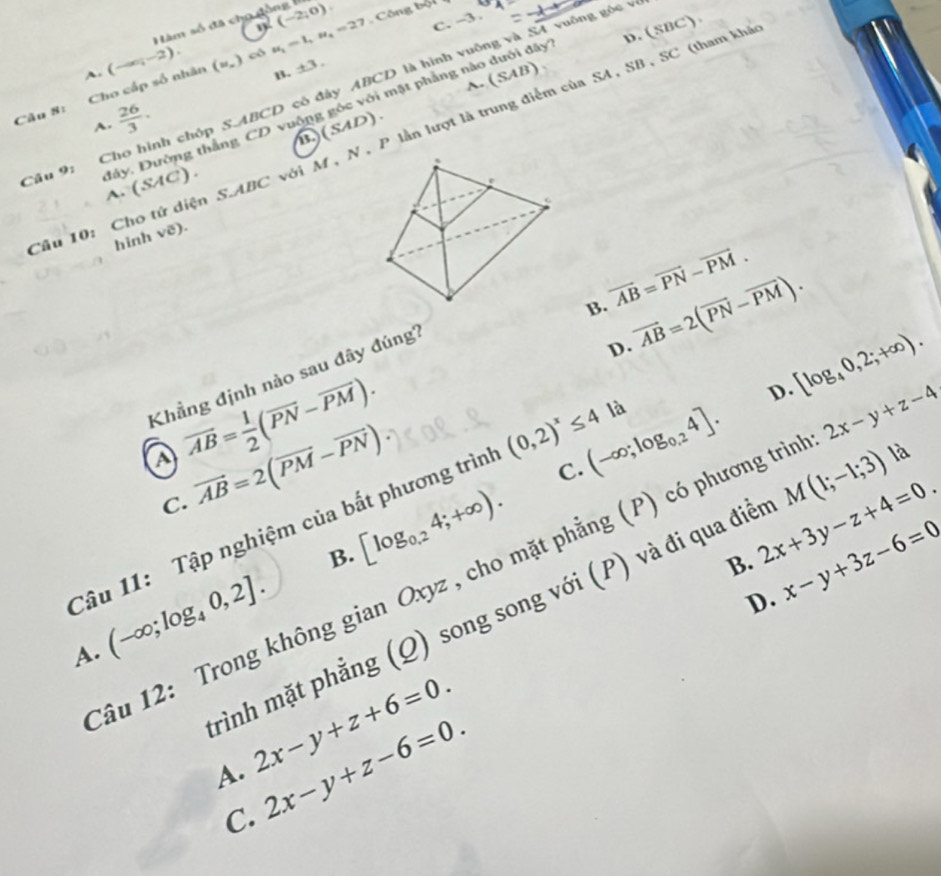 Hàm số đã cho đồng
A. (−∞;−2).
D. (−2;0).
Câu 8: Cho cấp số nhân (uₙ) có u₁ = 1, u₄ = 27. Công bội
A. 26/3.
B. ±3.
C. −3.
Câu 9: Cho hình chóp S.ABCD có đáy ABCD là hình vuông và SA vuông góc với
đáy. Đường thẳng CD vuông góc với mặt phẳng nào dưới đây?
A. (SAC).
B. (SAD).
A. (SAB).
D. (SBC).
Câu 10: Cho tứ diện S.ABC với M, N, P lần lượt là trung điểm của SA, SB, SC (tham khảo
hình vẽ).
Khẳng định nào sau đây đúng?
A. AB⃗ = 1/2(PN⃗ − PM⃗).
B. AB⃗ = PN⃗ − PM⃗.
C. AB⃗ = 2(PM⃗ − PN⃗).
D. AB⃗ = 2(PN⃗ − PM⃗).
Câu 11: Tập nghiệm của bất phương trình (0,2)ˣ ≤ 4 là
A. (−∞; log₄ 0,2].
B. [log₀,₂ 4; +∞).
C. (−∞; log₀,₂ 4].
D. [log₄ 0,2; +∞).
Câu 12: Trong không gian Oxyz, cho mặt phẳng (P) có phương trình: 2x − y + z − 4
trình mặt phẳng (Q) song song với (P) và đi qua điểm M(1;−1;3) là
A. 2x − y + z + 6 = 0.
B. 2x + 3y − z + 4 = 0.
C. 2x − y + z − 6 = 0.
D. x − y + 3z − 6 = 0